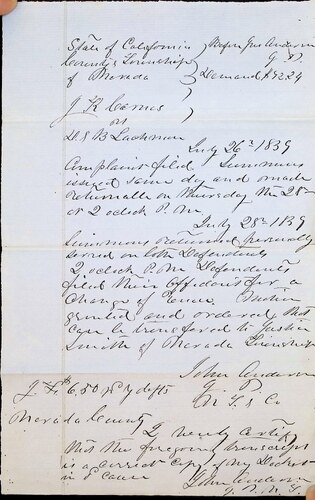 State of California } Before Jno Anderson
County & Township } J. P.
of Nevada } Demand $92.24
J. K. Carnes
vs
& B Lachman
July 26th 1859
Complaint filed, Summons
issued same day and made
returnable on Thursday the 28th
at 2 oclock P.M
July 28th 1859
Summons returned personally
served on both Defendants
2 oclock P.M Defendants
filed their affidavit for a
change of Venue. Motion
granted and ordered that
case be transferred to Justice
Smith of Nevada Township
John Anderson
J. P.
N. T. & Co
6.50 by defts
Nevada County
I hereby certify
that the foregoing transcript
is a correct copy of my Docket
in & cause
John Anderson
J. P. N. T.